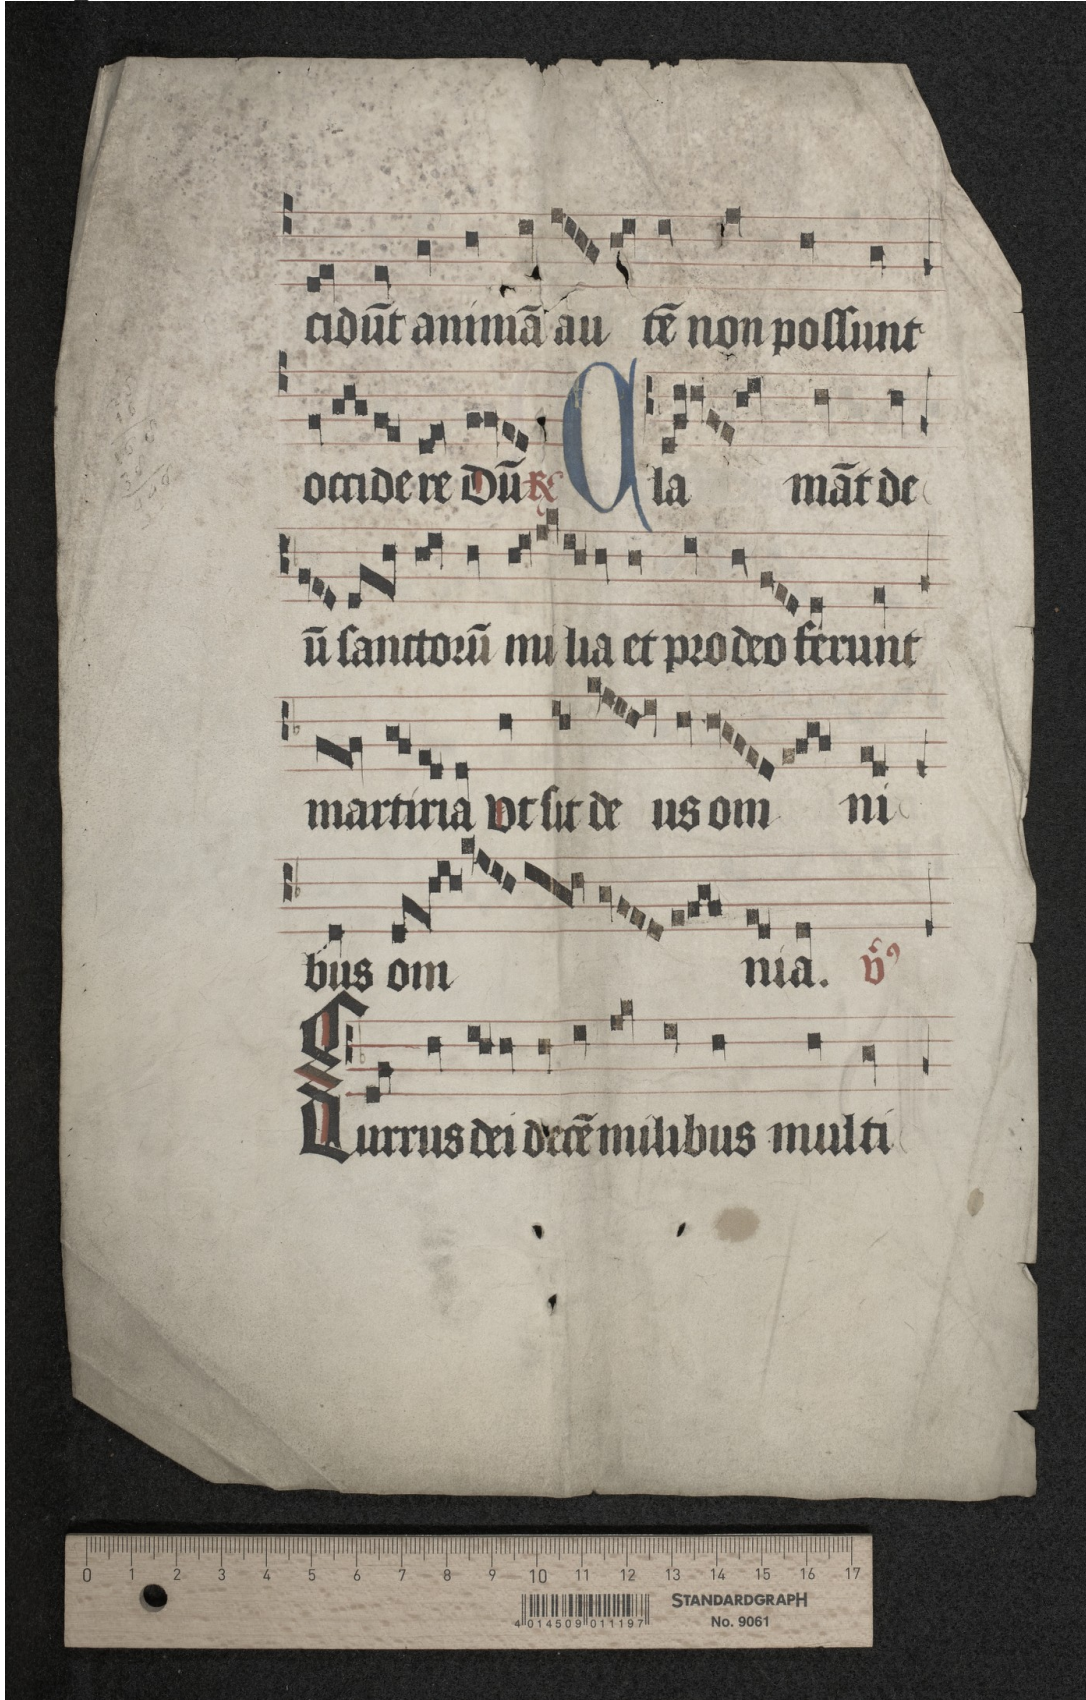 cidūt animā au tē non possunt
occidere Dū ℟ A la māt de
ū sanctorū mi lia et pro deo ferunt
martiria Vt sit de us om ni
bus om nia. v̄⁹
Currus dei decē milibus multi
0 1 2 3 4 5 6 7 8 9 10 11 12 13 14 15 16 17
STANDARDGRAPH
4 014509 011197 No. 9061